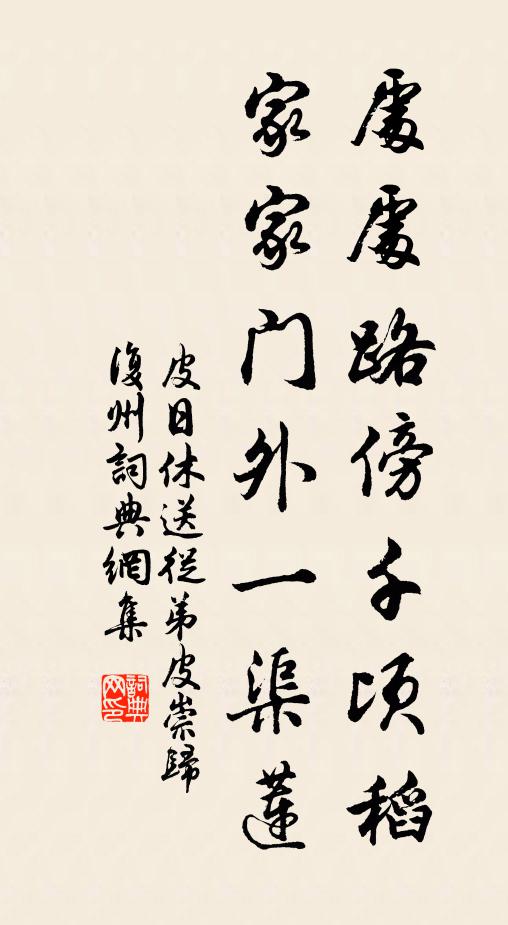 處處路傍千頃稻
家家門外一渠蓮
皮日休送從弟皮崇歸
復州詞典網集
詞典網印